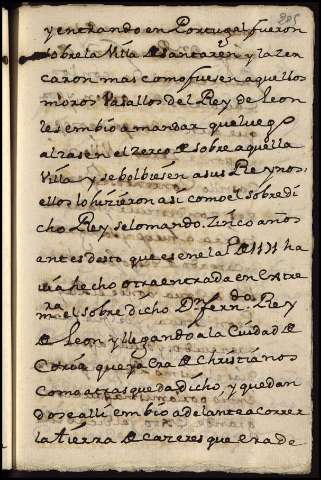 205
y entrando en Portugal fueron
sobre la Villa de Santaren, y la zer
caron mas como fuesen aquellos
moros Vasallos del Rey de Leon
les embio a mandar que luego
alzasen el zerco de sobre aquella
Villa y se bolbiesen a sus Reynos:
ellos lo hizieron asi como el sobre di
cho Rey selo mando. Zinco años
antes desto que es en el a
ha
via hecho otra entrada en Extre
ma.ra el sobre dicho Dn fern.do Rey
de Leon y llegando a la Ciudad de
Coria que ya era de Christianos
como atras queda dicho, y quedan
dose alli embio adelante a correr
la tierra de Cazeres que era de